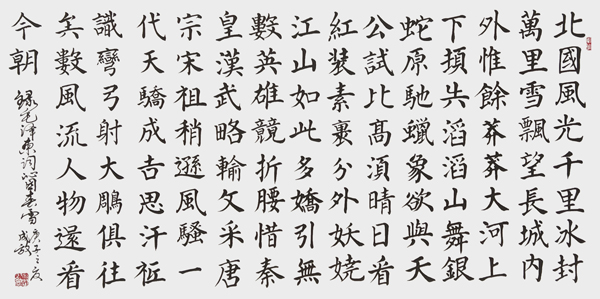 北國風光千里冰封
萬里雪飄望長城內
外惟餘莽莽大河上
下頓失滔滔山舞銀
蛇原馳蠟象欲與天
公試比髙須晴日看
紅裝素裹分外妖嬈
江山如此多嬌引無
數英雄競折腰惜秦
皇漢武略輸文采唐
宗宋祖稍遜風騷一
代天驕成吉思汗祗
識彎弓射大鵰俱往
矣數風流人物還看
今朝
錄毛澤東詞沁園春雪
庚子之夏